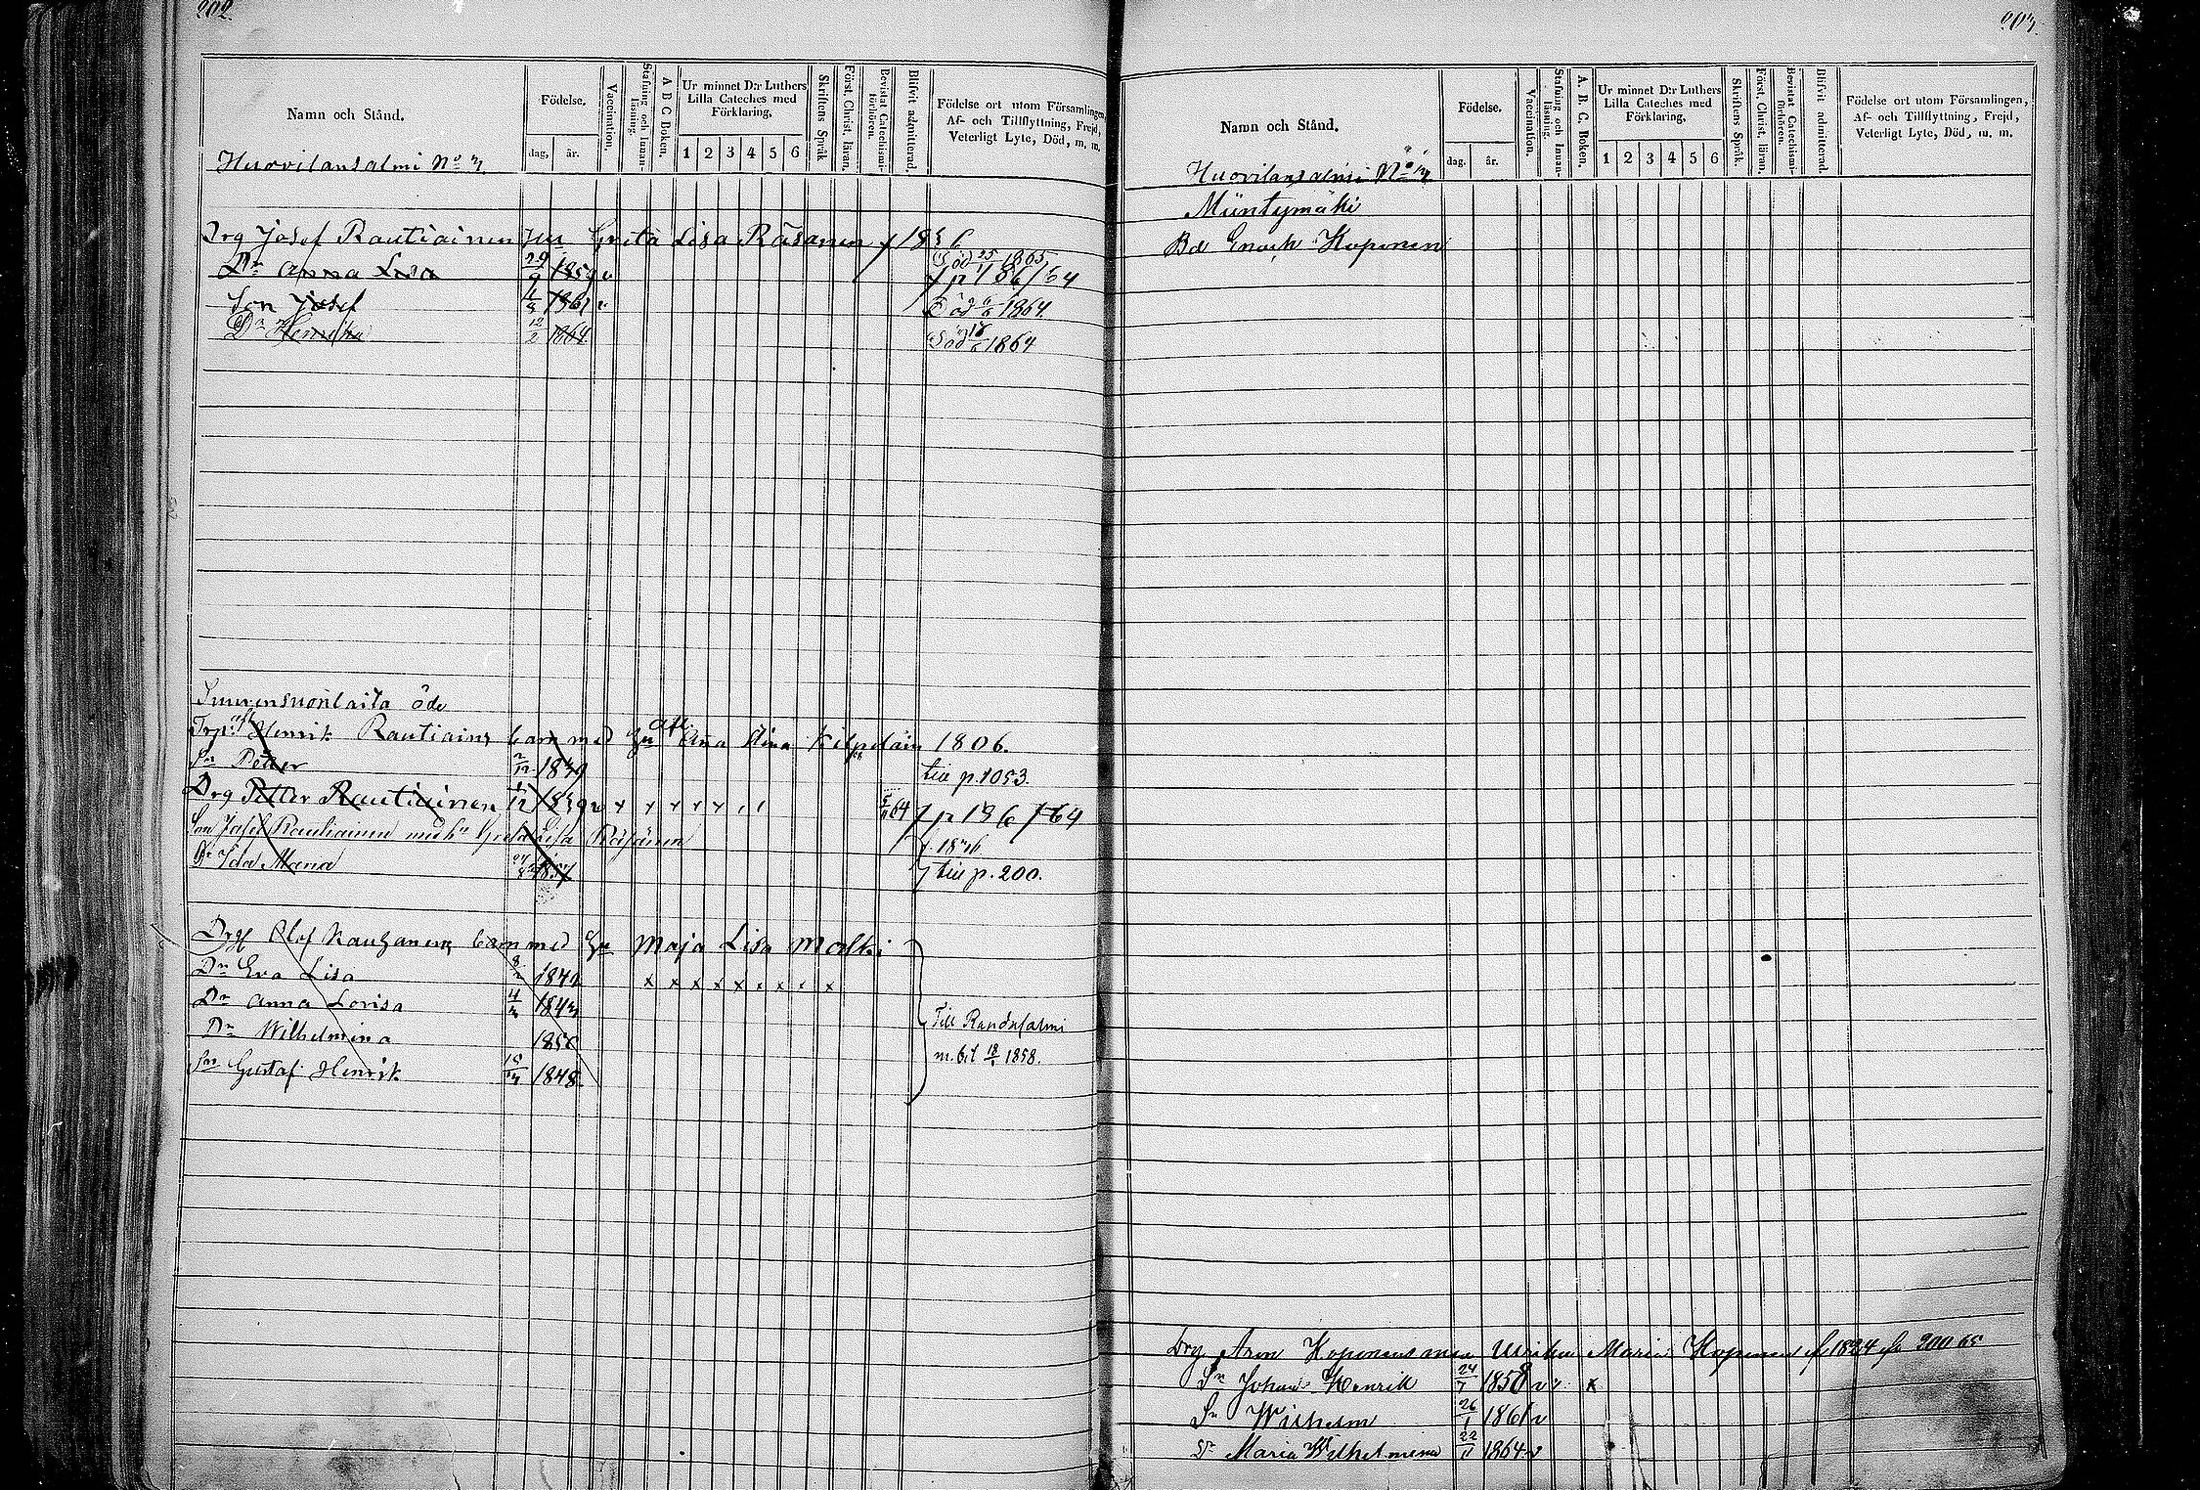 202.
Namn och Stånd.
Födelse.
dag,
år.
Vaccination.
Stafning och Innan-
läsning.
A B C Boken.
Ur minnet D:r Luthers
Lilla Cateches med
Förklaring.
1 2 3 4 5 6
Skriftens Språk
Först. Christ. läran.
Bevistat Catechismi-
förhören.
Blifvit admitterad.
Födelse ort utom Församlingen,
Af- och Tillflyttning, Frejd,
Veterligt Lyte, Död, m. m.
Huovilansalmi No
Drg Josef Rautiainen Hu Greta Lisa Räsänen f 1836
Dr Anna Lisa 29/9 1859 v Död 25/1 1865
f p 186/64
Son Josef 1861 v Död 1864.
Dr Henrika 12/2 1864. Död 1864
öde
Henrik Rautiains barn med hu Anna Stina 1806.
Sn Petter 1839 till p. 1053.
Drg Petter Rautiainen 1839 v 64 f p 186/64
Son Josef Rautiainen med hu Greta Lisa Räsänen
Dr Ida Maria 1857 till p. 200.
Drg Olof barn med hu Maja Lisa
Dr Eva Lisa 1842 x x x x x x x x x
Dr Anna Lovisa 1843
Dr Wilhelmina 1850
Son Gustaf Henrik 1848
Till Randasalmi
m. bet 1858.
203.
Namn och Stånd.
Födelse.
dag.
år.
Vaccination.
Stafning och Innan-
läsning.
A. B. C. Boken.
Ur minnet D:r Luthers
Lilla Cateches med
Förklaring,
1 2 3 4 5 6
Skriftens Språk.
Först. Christ. läran.
Bevistat Catechismi-
förhören.
Blifvit admitterad.
Födelse ort utom Församlingen,
Af- och Tillflyttning, Frejd,
Veterligt Lyte, Död, m. m.
Huovilansalmi No
Mäntymäki
Bd Enoch Koponen
Drg Aron Koponens Ulrika Maria Koponen f 1824 fr 200 65
Sn Johan Henrik 24/7 1858 v x
Sn Wilhelm 26/1 1861 v
Dr Maria Wilhelmina 22/11 1864 v